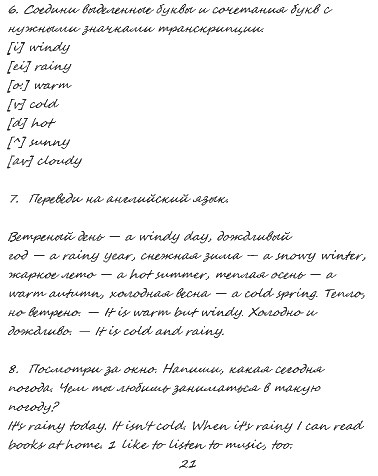 6. Соедини выделенные буквы и сочетания букв с
нужными значками транскрипции.
[i] windy
[ei] rainy
[o:] warm
[v] cold
[d] hot
[^] sunny
[av] cloudy
7. Переведи на английский язык.
Ветреный день — a windy day, дождливый
год — a rainy year, снежная зима — a snowy winter,
жаркое лето — a hot summer, теплая осень — a
warm autumn, холодная весна — a cold spring. Тепло,
но ветрено. — It is warm but windy. Холодно и
дождливо. — It is cold and rainy.
8. Посмотри за окно. Напиши, какая сегодня
погода. Чем ты любишь заниматься в такую
погоду?
It's rainy today. It isn't cold. When it's rainy I can read
books at home. I like to listen to music, too.
21